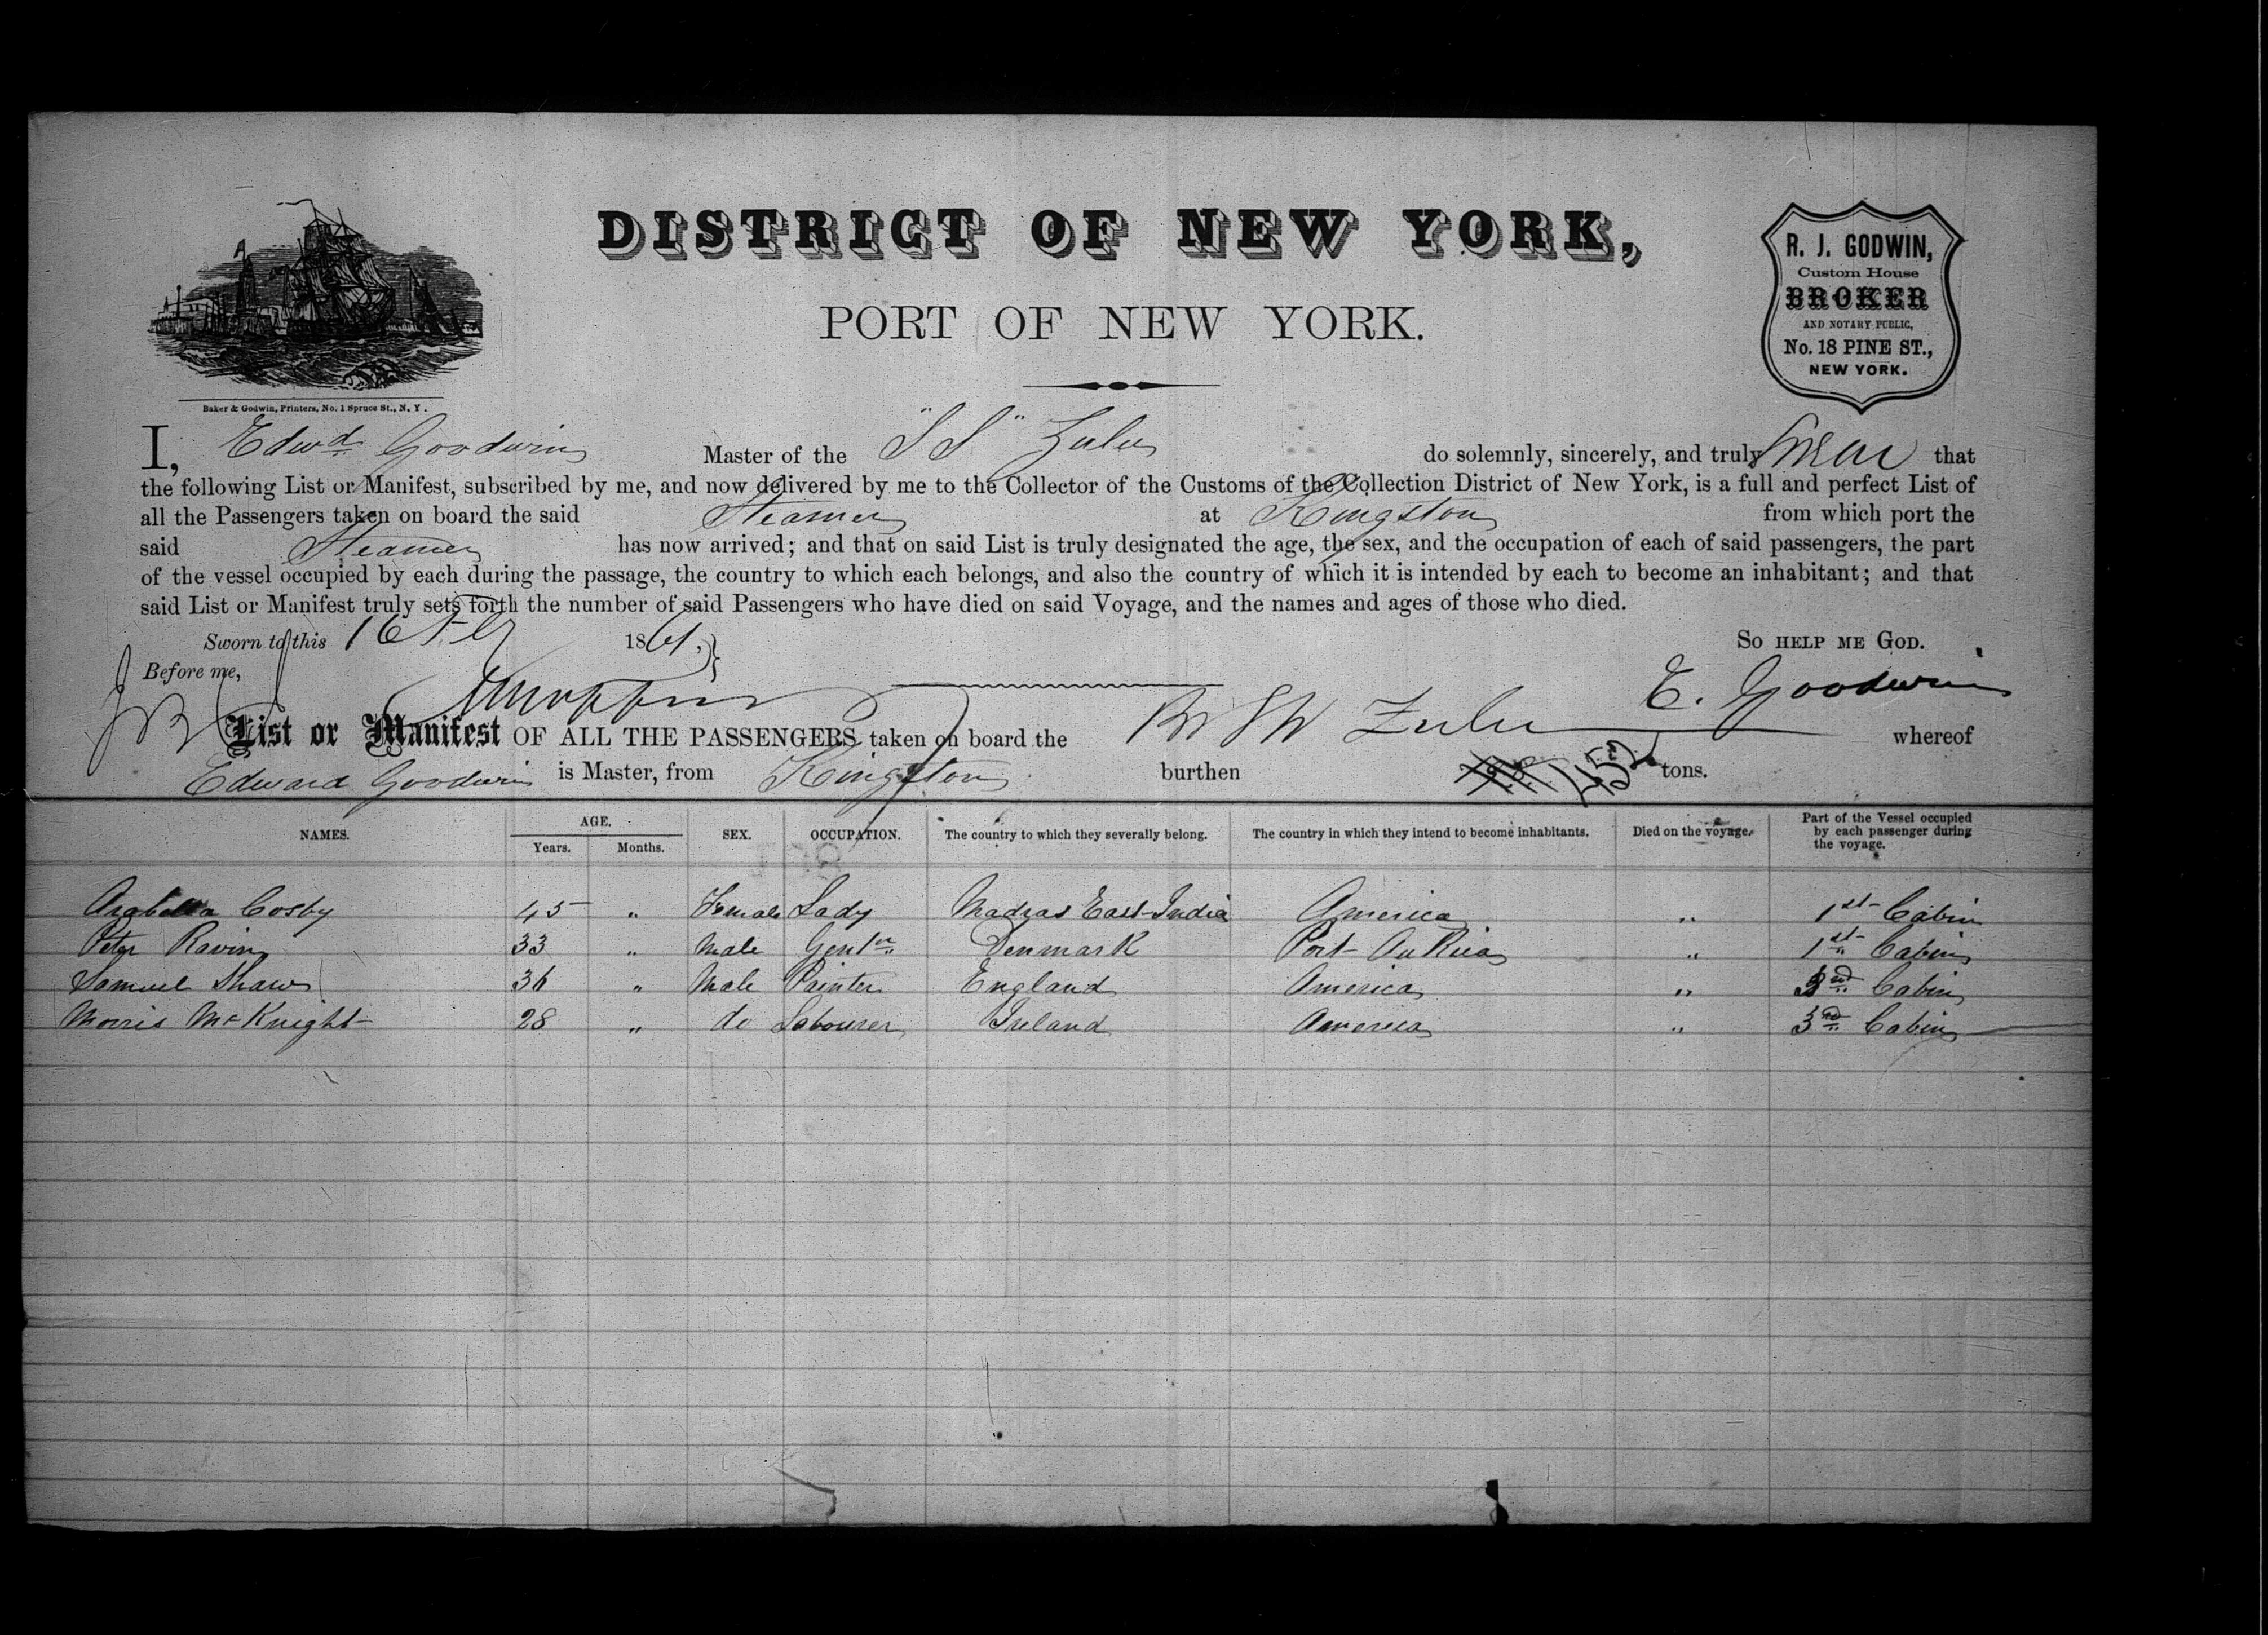 DISTRICT OF NEW YORK,
PORT OF NEW YORK.
R. J. GODWIN,
Custom House
BROKER
AND NOTARY PUBLIC,
No. 18 PINE ST.,
NEW YORK.
Baker & Godwin, Printers, No. 1 Spruce St., N. Y.
I, Edwd. Goodwin Master of the "SS" Zulu do solemnly, sincerely, and truly swear that
the following List or Manifest, subscribed by me, and now delivered by me to the Collector of the Customs of the Collection District of New York, is a full and perfect List of
all the Passengers taken on board the said Steamer at Kingston from which port the
said Steamer has now arrived; and that on said List is truly designated the age, the sex, and the occupation of each of said passengers, the part
of the vessel occupied by each during the passage, the country to which each belongs, and also the country of which it is intended by each to become an inhabitant; and that
said List or Manifest truly sets forth the number of said Passengers who have died on said Voyage, and the names and ages of those who died.
Sworn to this 16 1861. SO HELP ME GOD.
Before me, E. Goodwin
List or Manifest OF ALL THE PASSENGERS taken on board the Zulu whereof
Edward Goodwin is Master, from Kingston burthen tons.
NAMES. AGE. Years. Months. SEX. OCCUPATION. The country to which they severally belong. The country in which they intend to become inhabitants. Died on the voyage. Part of the Vessel occupied by each passenger during the voyage.
Arabella Cosby 45 " Female Lady Madras East-India America " 1st Cabin
Peter Ravin 33 " Male Gentn. Denmark Port- Au Rico " 1st Cabin
Samuel Shaw 36 " Male Printer England America " 3rd Cabin
Morris McKnight 28 " do Labourer Ireland America " 3rd Cabin